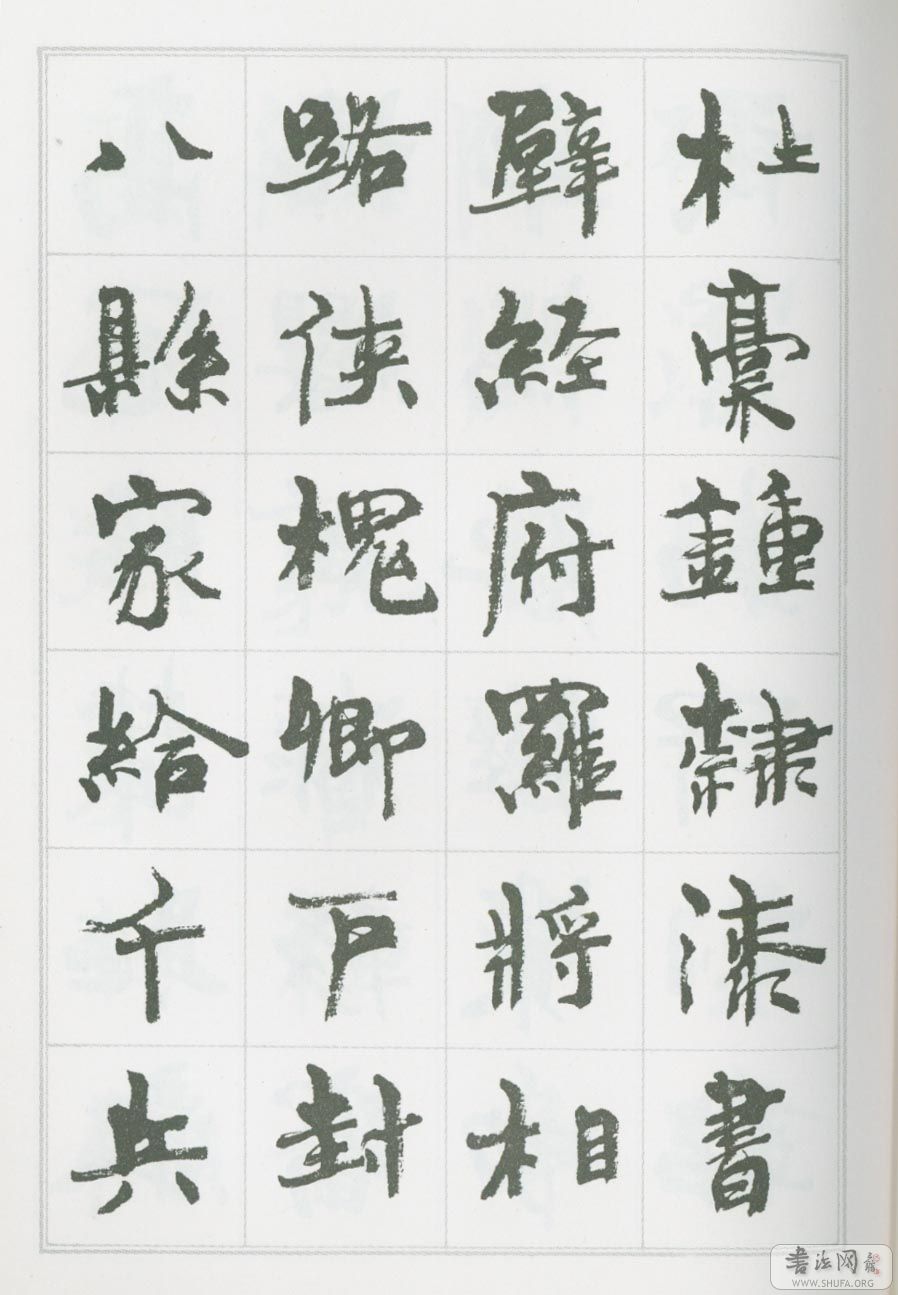 杜稾鍾隸漆書
壁経府羅將相
路俠槐卿户封
八縣家給千兵
書法网
WWW.SHUFA.ORG